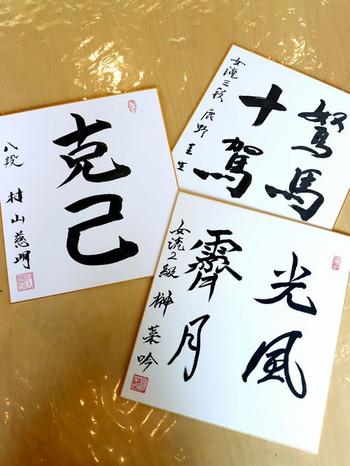 克己
八段 村山慈明
駑馬
十駕
女流三段 鹿野圭生
光風
霽月
女流2級 榊菜吟